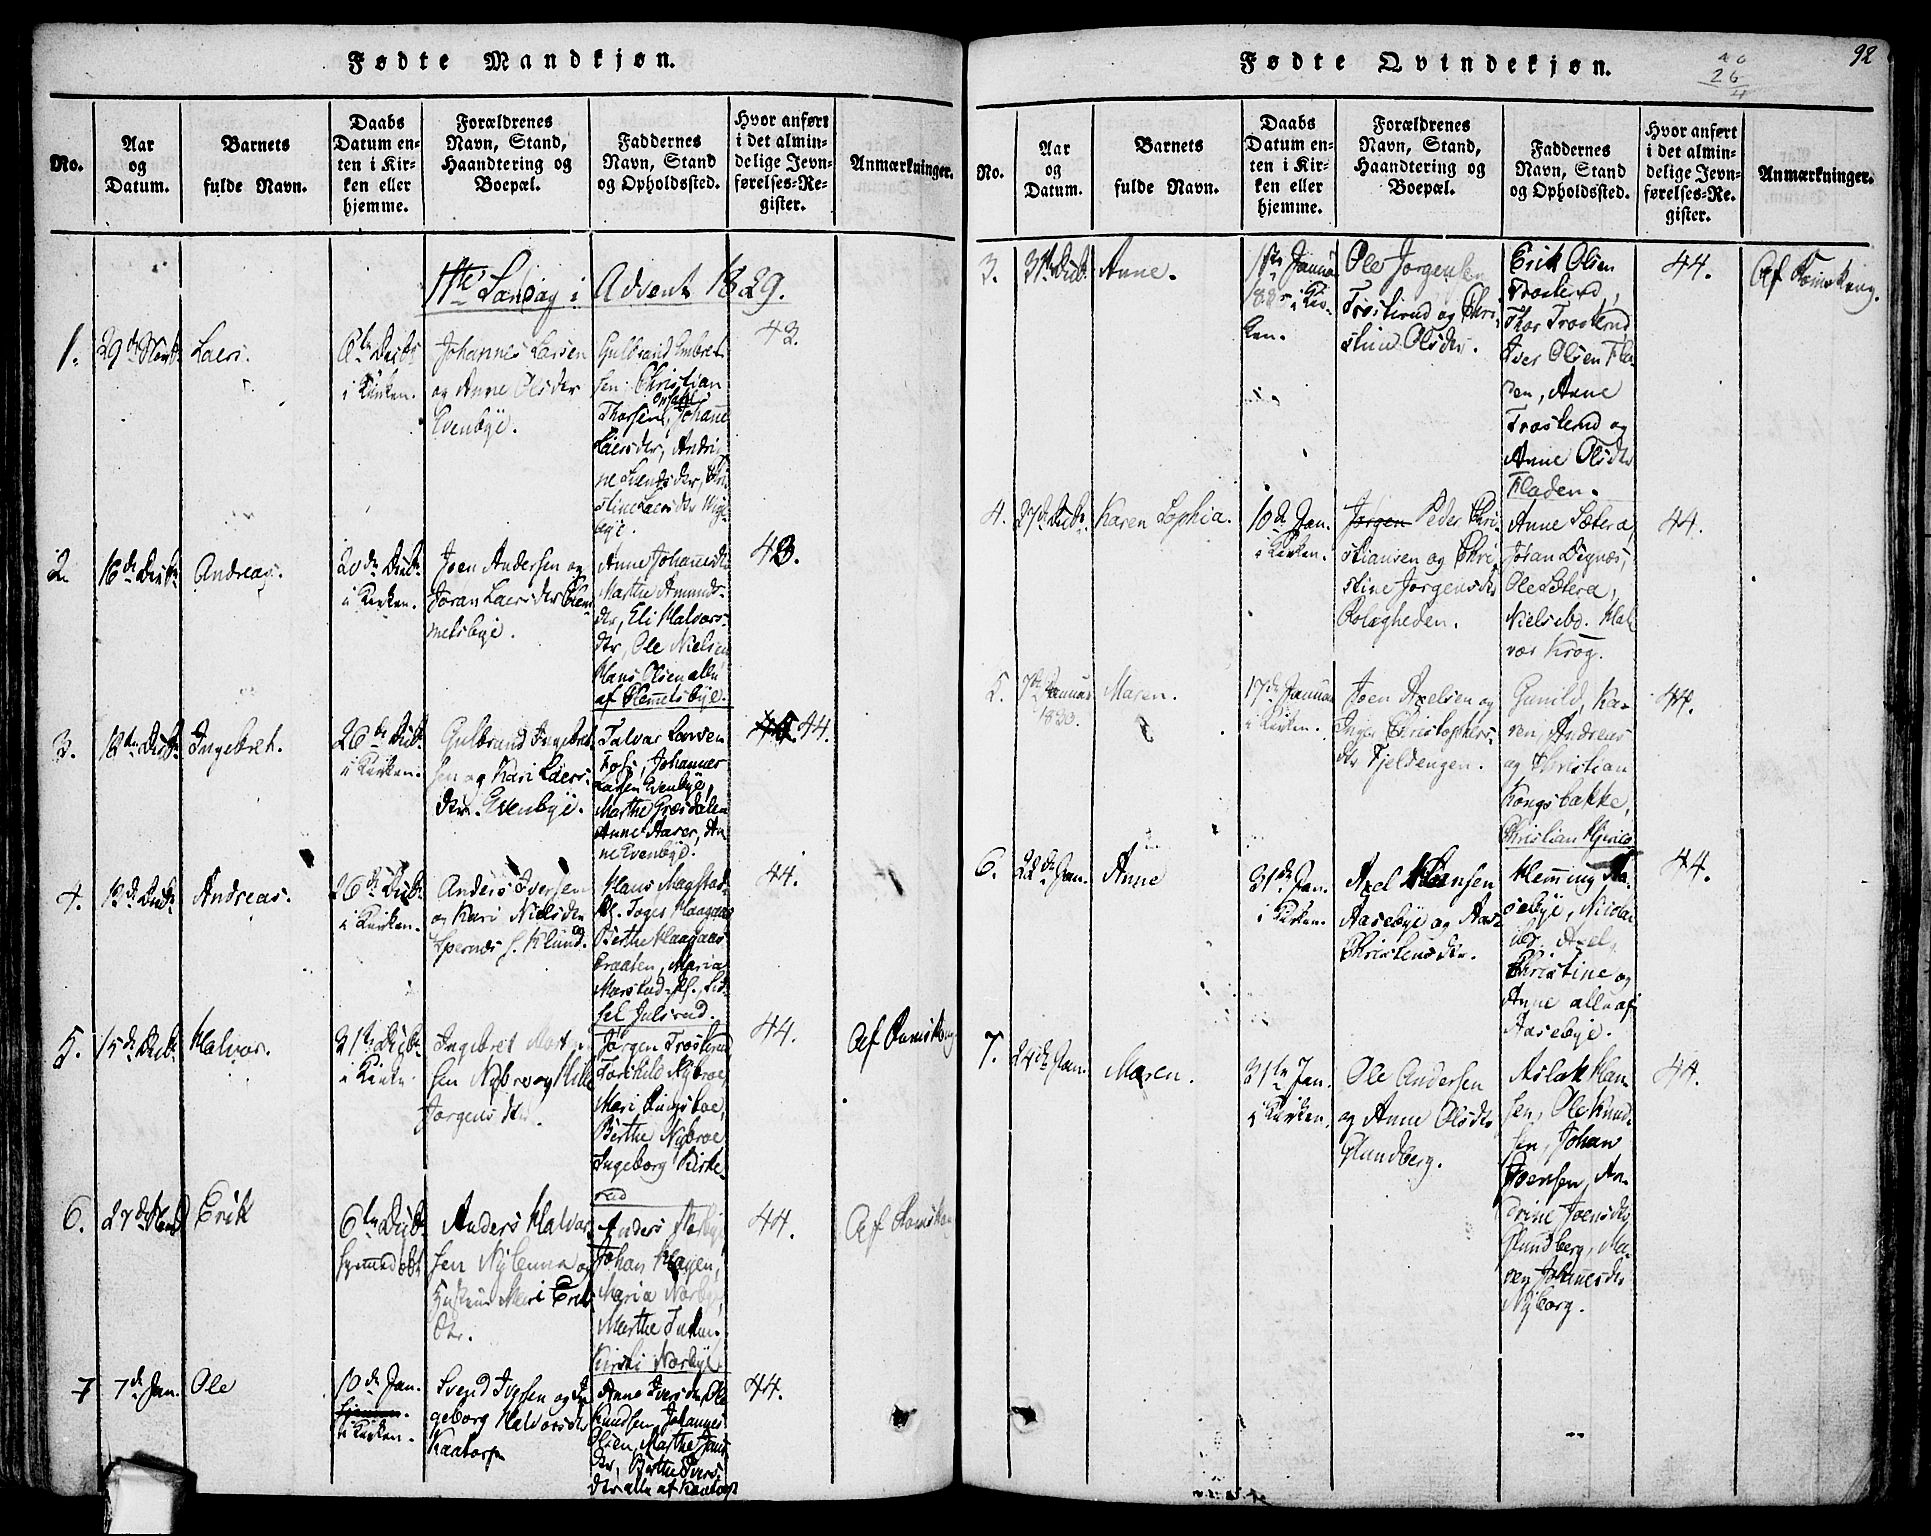 Fødte Mandkjøn.
No.
Aar
og
Datum.
Barnets
fulde Navn.
Daabs
Datum en-
ten i Kir-
ken eller
hjemme.
Forældrenes
Navn, Stand,
Haandtering og
Boepæl.
Faddernes
Navn, Stand
og Opholdssted.
Hvor anført
i det almin-
delige Jevn-
førelses-Re-
gister.
Anmærkninger.
1ste Søndag i Advent 1829.
1.
Laers.
i Kirken.
Johannes Larsen
og Anne Olsdtr
Evenbye.
Gulbrand Embret-
sen, Christian
Thorsen, Johanne
Laersdtr, Andri-
43.
2.
16de Decbr
Andreas.
20de Decbr
i Kirken.
Joen Andersen og
Joran Laersdtr Clem-
metsbye.
Anne Johannesdtr
Marthe Amunds-
dtr, Eli Halvors-
dtr, Ole Nielsen
Hans Olsen alle
af Clemmetsbye.
43.
3.
18de Decbr
Ingebret.
26de Decbr
i Kirken.
Gulbrand Ingebret-
sen og Kari Laers-
dtr. Evenbye.
Johannes
Larsen Evenbye,
Marthe Græsdalen
Anne Aaser, An-
ne Evenbye.
44.
4.
13de Decbr
Andreas.
26de Decbr
i Kirken.
Anders Iversen
og Kari Nielsdtr
Hans Magstad-
Berthe Haagaas-
braaten, Maria
sel Julsrud.
44.
5.
15de Decbr
Halvor.
i Kirken
Jørgensdtr.
Jørgen Trosterud
Torskild Nybroe,
Mari Ringsboe,
Berthe Nybroe
Ingeborg Kirke-
rud
44.
Af Rømskoug
6.
Erik
6te Decbr
hjemmedøbt
Anders Halvor-
sen
Mari Eriks-
dtr.
Johan Hagen,
Maria Nørbye,
Kirsti Nørbye.
44.
Af Rømskoug
7
7de Jan.
Ole
10de Jan.
i Kirken.
Svend Iversen og In-
geborg Halvorsdtr
Kaatorp
Anne Iversdtr, Ole
Knudsen, Johannes
Olsen, Marthe
dtr, Berthe Ivers-
dtr alle af Kaatorp
44.
Fødte Qvindekjøn.
26
4
92
No.
Aar
og
Datum.
Barnets
fulde Navn.
Daabs
Datum en-
ten i Kir-
ken eller
hjemme.
Forældrenes
Navn, Stand,
Haandtering og
Boepæl.
Faddernes
Navn, Stand
og Opholdssted.
Hvor anført
i det almin-
delige Jevn-
førelses-Re-
gister.
Anmærkninger.
3.
31te Decbr
Anne.
i Kir-
ken.
Ole Jørgensen
Trosterud og Chri-
stine Olsdtr.
Erik Olsen
Trosterud,
Thor Trosterud
Iver Olsen Fla-
den, Anne
Trosterud og
Anne Olsdtr
Fladen.
44.
Af Rømskoug.
4.
27de Decbr
Karen Sophia.
10de Jan.
i Kirken.
Jørgen Peder Chri-
stiansen og Chri-
stine Jørgensdtr
Roligheden.
Anne Sætera,
Johan Digenæs,
Ole Sætera,
Nielsebo. Hal-
vor Krog.
44.
5.
7de Januar
1830.
Maren.
17de Januar
i Kirken.
Joen Axelsen og
Inger Christophers-
dtr Fjeldengen.
Gunild, Ka-
ren, Andreas
og Christian
Kongsbakke,
44.
6.
22de Jan.
Anne
31te Jan.
i Kirken.
Axel Hansen
Aasebye og Aase
Christensdtr.
Flemming Aa-
sebye, Nicolai
Axel,
Christine og
Anne alle af
Aasebye.
44.
7.
24de Jan.
Maren.
31te Jan.
i Kirken.
Ole Andersen
og Anne Olsdtr
Glundberg.
Aslak Han-
sen, Ole Knud-
sen, Johan
Joensen, An-
drine Joensdtr
Glundberg, Ma-
ren Johannesdtr
Nyborg.
44.